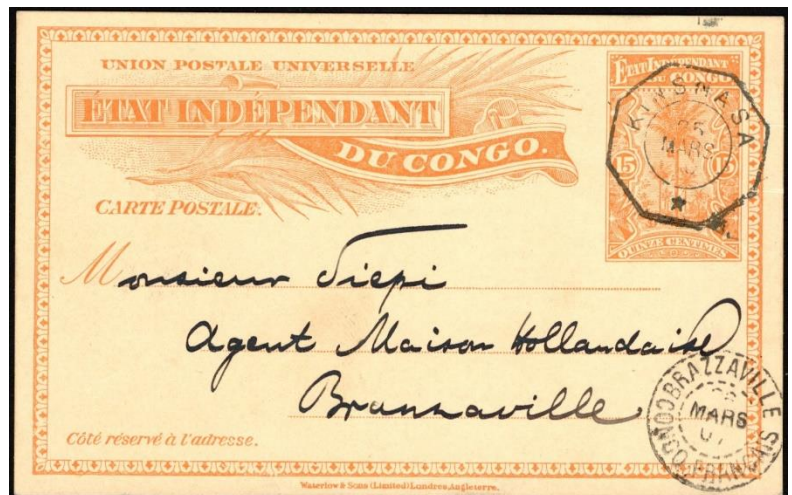 UNION POSTALE UNIVERSELLE
ÉTAT INDÉPENDANT
DU CONGO.
CARTE POSTALE.
ETAT INDEPENDANT
DU CONGO
15 15
QUINZE CENTIMES
KINSHASA
MARS
Monsieur Tiepi
Agent Maison Hollandaise
Brazzaville
BRAZZAVILLE
MARS
07
CONGO FRANÇAIS
Côté réservé à l'adresse.
Waterlow & Sons (Limited) Londres, Angleterre.